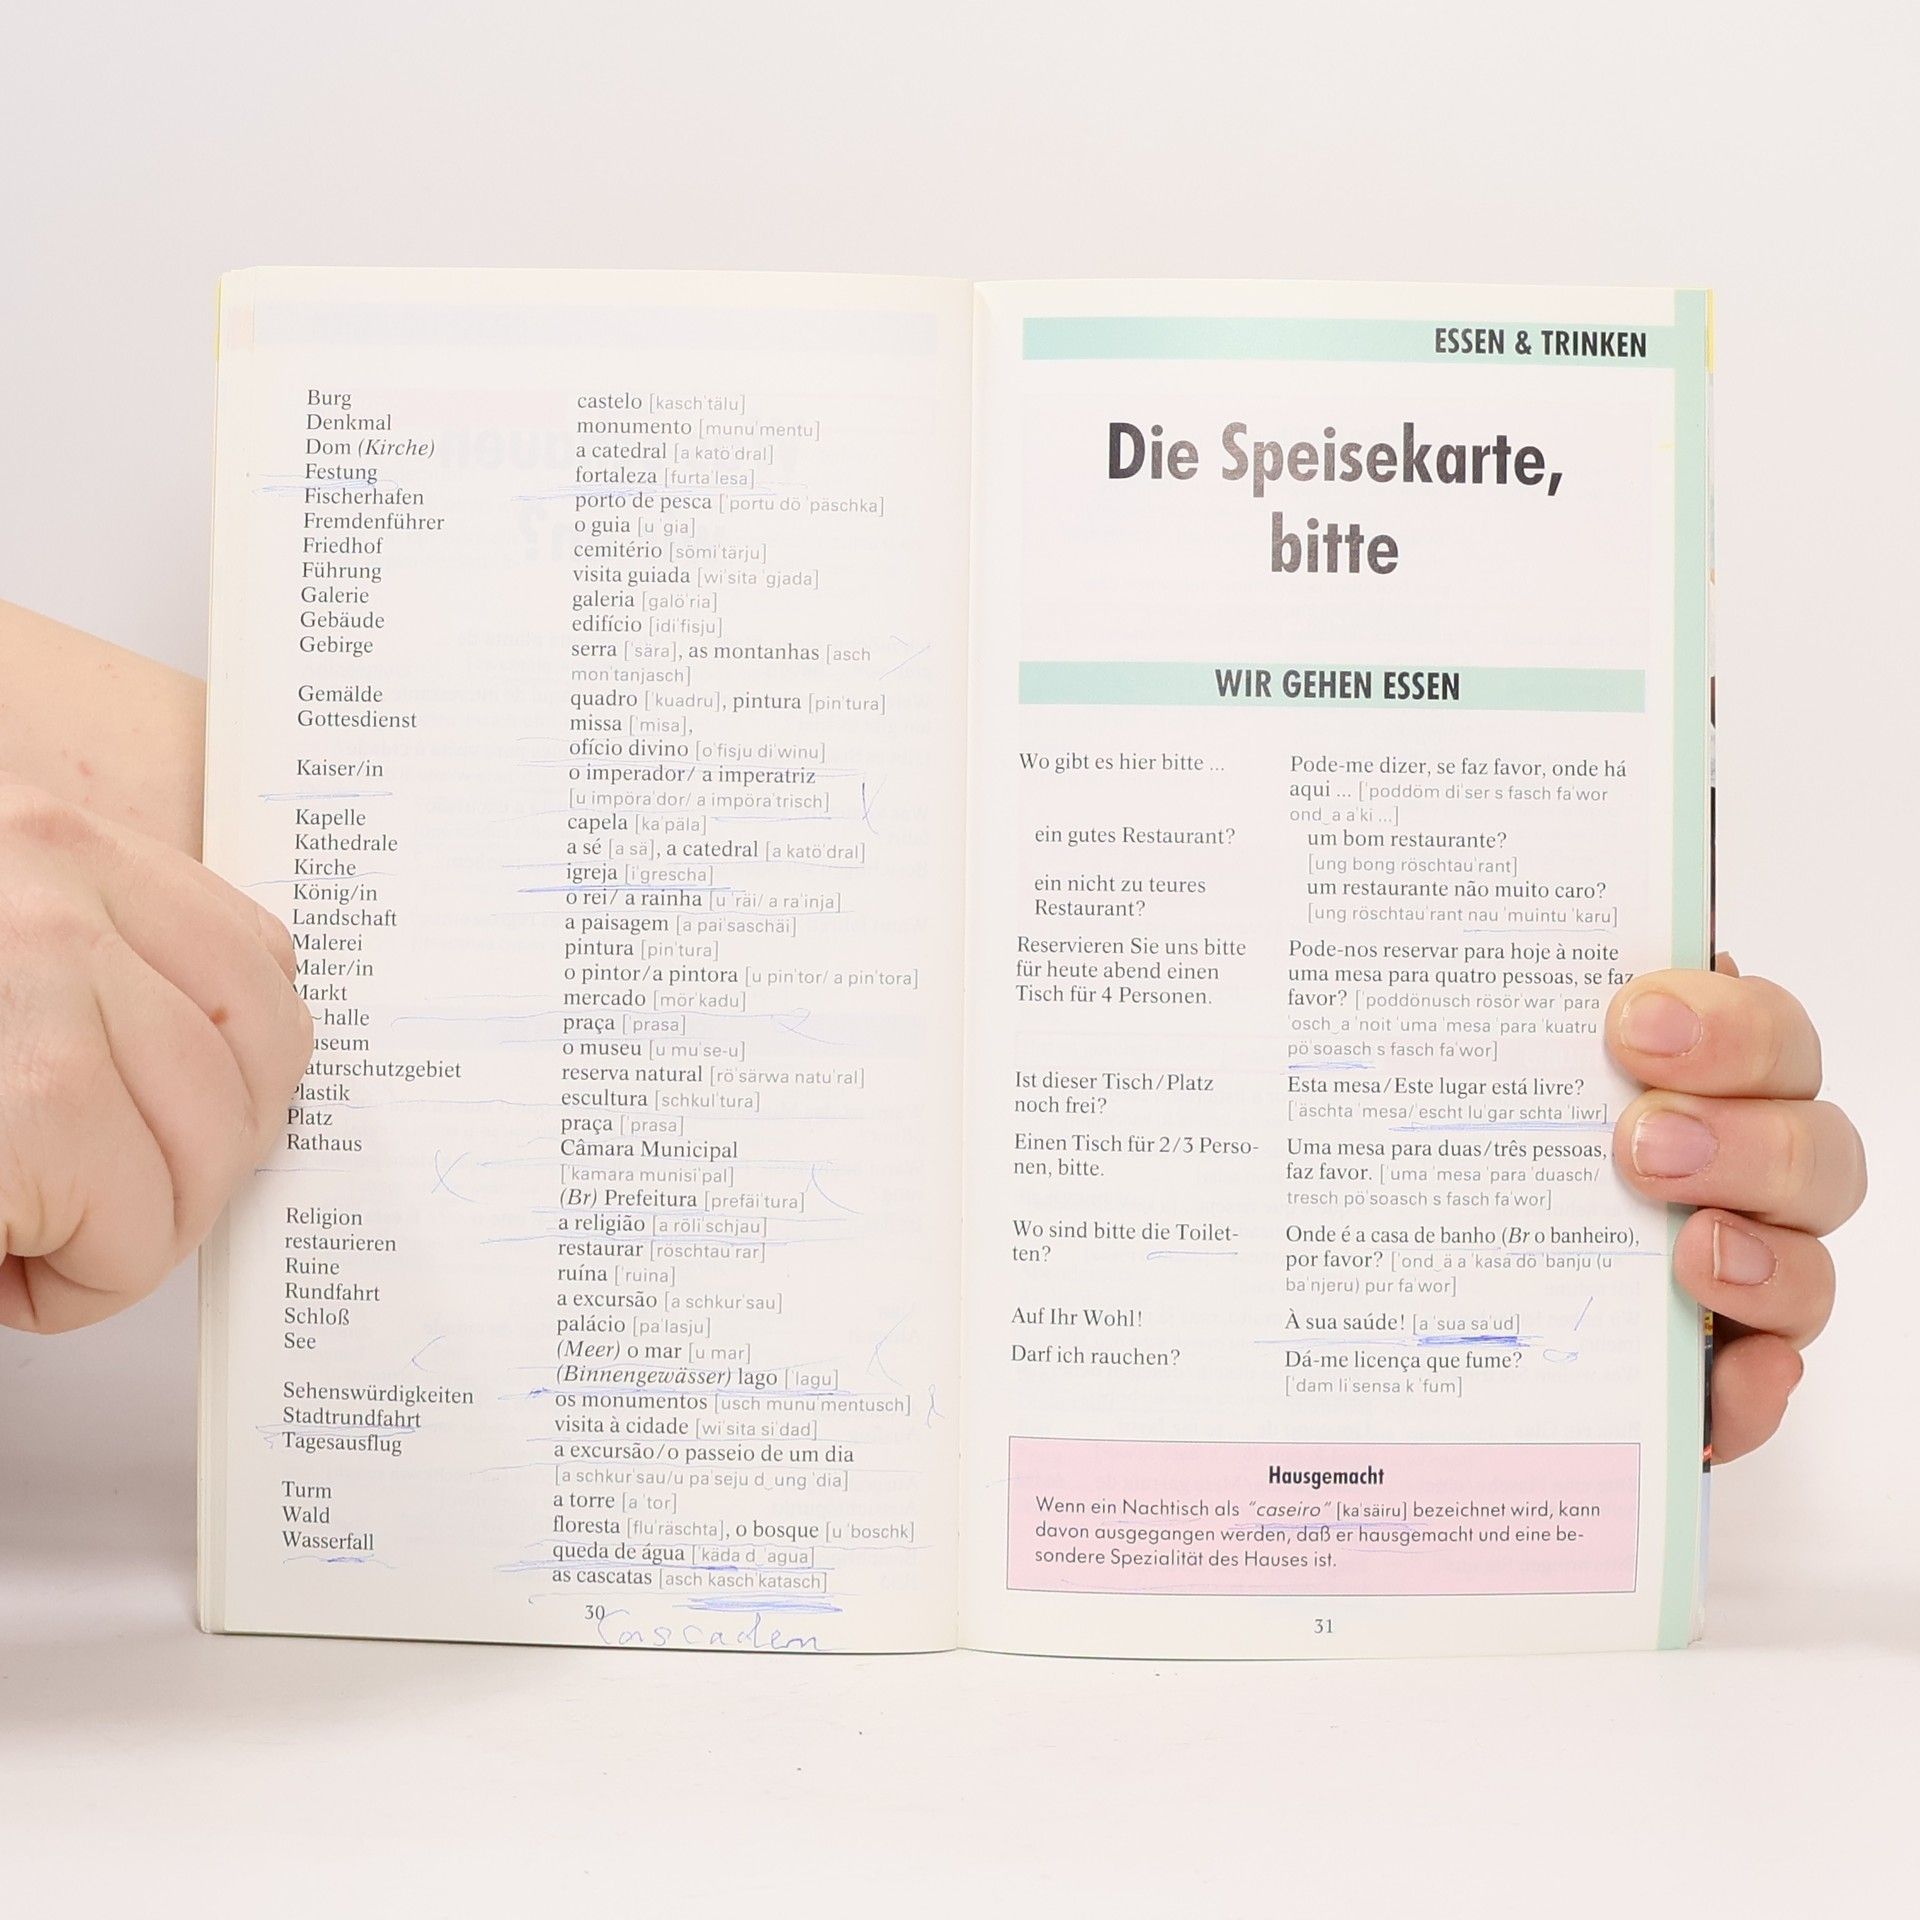 Burg castelo [kasch'tälu]
Denkmal monumento [munu'mentu]
Dom (Kirche) a catedral [a katö'dral]
Festung fortaleza [furta'lesa]
Fischerhafen porto de pesca ['portu dö 'päschka]
Fremdenführer o guia [u 'gia]
Friedhof cemitério [sömi'tärju]
Führung visita guiada [wi'sita 'gjada]
Galerie galeria [galö'ria]
Gebäude edifício [idi'fisju]
Gebirge serra ['sära], as montanhas [asch
mon'tanjasch]
Gemälde quadro ['kuadru], pintura [pin'tura]
Gottesdienst missa ['misa],
ofício divino [o'fisju di'winu]
Kaiser/in o imperador/ a imperatriz
[u impöra'dor/ a impöra'trisch]
Kapelle capela [ka'päla]
Kathedrale a sé [a sä], a catedral [a katö'dral]
Kirche igreja [i'grescha]
König/in o rei/ a rainha [u 'räi/ a ra'inja]
Landschaft a paisagem [a pai'saschäi]
Malerei pintura [pin'tura]
Maler/in o pintor/a pintora [u pin'tor/ a pin'tora]
Markt mercado [mör'kadu]
~halle praça ['prasa]
useum o museu [u mu'se-u]
aturschutzgebiet reserva natural [rö'särwa natu'ral]
Plastik escultura [schkul'tura]
Platz praça ['prasa]
Rathaus Câmara Municipal
['kamara munisi'pal]
(Br) Prefeitura [prefäi'tura]
Religion a religião [a röli'schjau]
restaurieren restaurar [röschtau'rar]
Ruine ruína ['ruina]
Rundfahrt a excursão [a schkur'sau]
Schloß palácio [pa'lasju]
See (Meer) o mar [u mar]
(Binnengewässer) lago ['lagu]
Sehenswürdigkeiten os monumentos [usch munu'mentusch]
Stadtrundfahrt visita à cidade [wi'sita si'dad]
Tagesausflug a excursão/o passeio de um dia
[a schkur'sau/u pa'seju d‿ung 'dia]
Turm a torre [a 'tor]
Wald floresta [flu'räschta], o bosque [u 'boschk]
Wasserfall queda de água ['käda d‿'agua]
as cascatas [asch kasch'katasch]
30
Cascaden
ESSEN & TRINKEN
Die Speisekarte,
bitte
WIR GEHEN ESSEN
Wo gibt es hier bitte ... Pode-me dizer, se faz favor, onde há
aqui ... ['poddöm di'ser s fasch fa'wor
ond‿a a'ki ...]
ein gutes Restaurant? um bom restaurante?
[ung bong röschtau'rant]
ein nicht zu teures um restaurante não muito caro?
Restaurant? [ung röschtau'rant nau 'muintu 'karu]
Reservieren Sie uns bitte Pode-nos reservar para hoje à noite
für heute abend einen uma mesa para quatro pessoas, se faz
Tisch für 4 Personen. favor? ['poddönusch rösör'war 'para
'osch‿a 'noit 'uma 'mesa 'para 'kuatru
pö'soasch s fasch fa'wor]
Ist dieser Tisch/Platz Esta mesa/Este lugar está livre?
noch frei? ['äschta 'mesa/'escht lu'gar schta 'liwr]
Einen Tisch für 2/3 Perso- Uma mesa para duas/três pessoas,
nen, bitte. faz favor. ['uma 'mesa 'para 'duasch/
tresch pö'soasch s fasch fa'wor]
Wo sind bitte die Toilet- Onde é a casa de banho (Br o banheiro),
ten? por favor? ['ond‿ä a 'kasa dö 'banju (u
ba'njeru) pur fa'wor]
Auf Ihr Wohl! À sua saúde! [a 'sua sa'ud]
Darf ich rauchen? Dá-me licença que fume?
['dam li'sensa k 'fum]
Hausgemacht
Wenn ein Nachtisch als "caseiro" [ka'säiru] bezeichnet wird, kann
davon ausgegangen werden, daß er hausgemacht und eine be-
sondere Spezialität des Hauses ist.
31